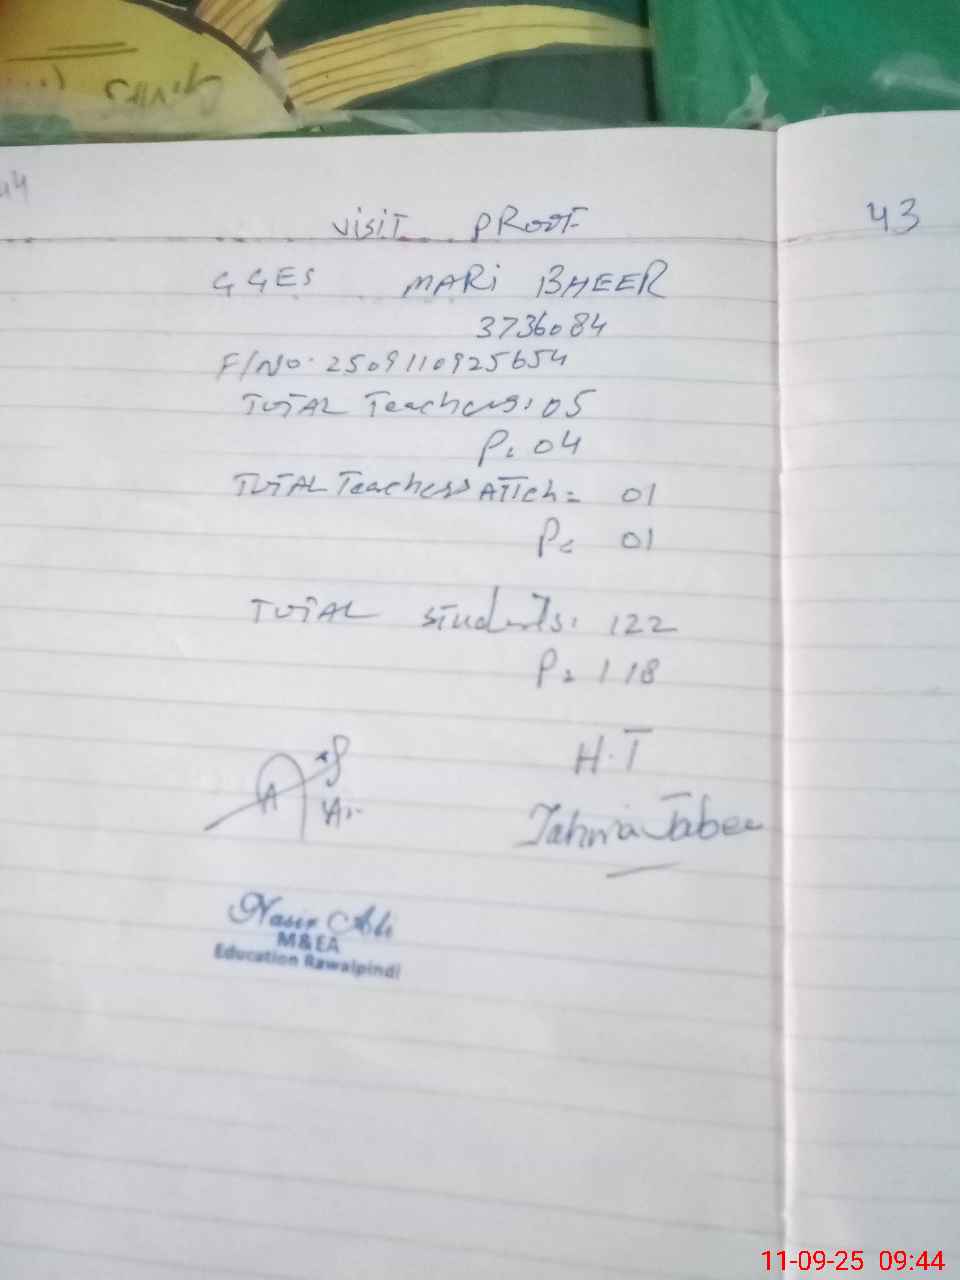 44
43
VISIT PROOF
GGES MARI BHEER
3736084
F/NO. 2509110925654
TOTAL Teachers: 05
P: 04
TOTAL Teachers ATTch = 01
P= 01
TOTAL Students: 122
P= 118
H.T
Nasir Ali
M&EA
Education Rawalpindi
11-09-25 09:44